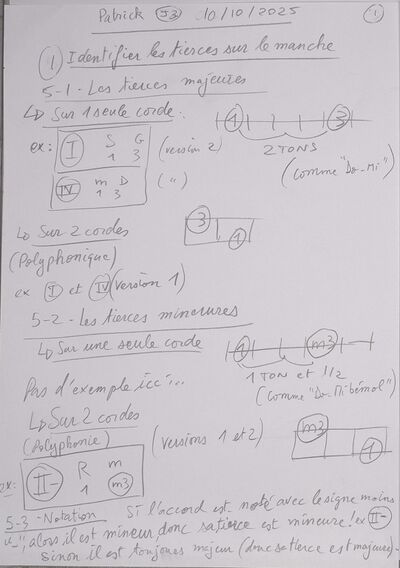 Patrick 53 10/10/2025
1
① Identifier les tierces sur le manche
5-1 - Les tierces majeures
↳ Sur 1 seule corde :
1 3
ex : I S G (version 2)
1 3
2 TONS
(comme "Do-Mi")
IV m D (")
1 3
↳ Sur 2 cordes
3
1
(Polyphonique)
ex I et IV (version 1)
5-2 - Les tierces mineures
↳ Sur une seule corde
1 m3
1 TON et 1/2
Pas d'exemple ici...
(comme "Do-Mi bémol")
↳ Sur 2 cordes
(Polyphonie) (versions 1 et 2)
m3
1
ex : II- R m
1 m3
5-3 - Notation Si l'accord est noté avec le signe moins
"-", alors il est mineur donc sa tierce est mineure ! ex II-
Sinon il est toujours majeur (donc sa tierce est majeure) -